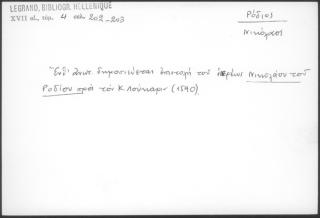 LEGRAND, BIBLIOGR. HELLENIQUE
XVII αἰ., τομ. 4 σελ. 202-203
Ρόδιος
Νικόλαος
Ἔνθ' ἀνωτ. δημοσιεύεται ἐπιστολή τοῦ ἱερέως Νικολάου τοῦ
Ροδίου πρὸς τὸν Κ. Λούκαριν (1590)